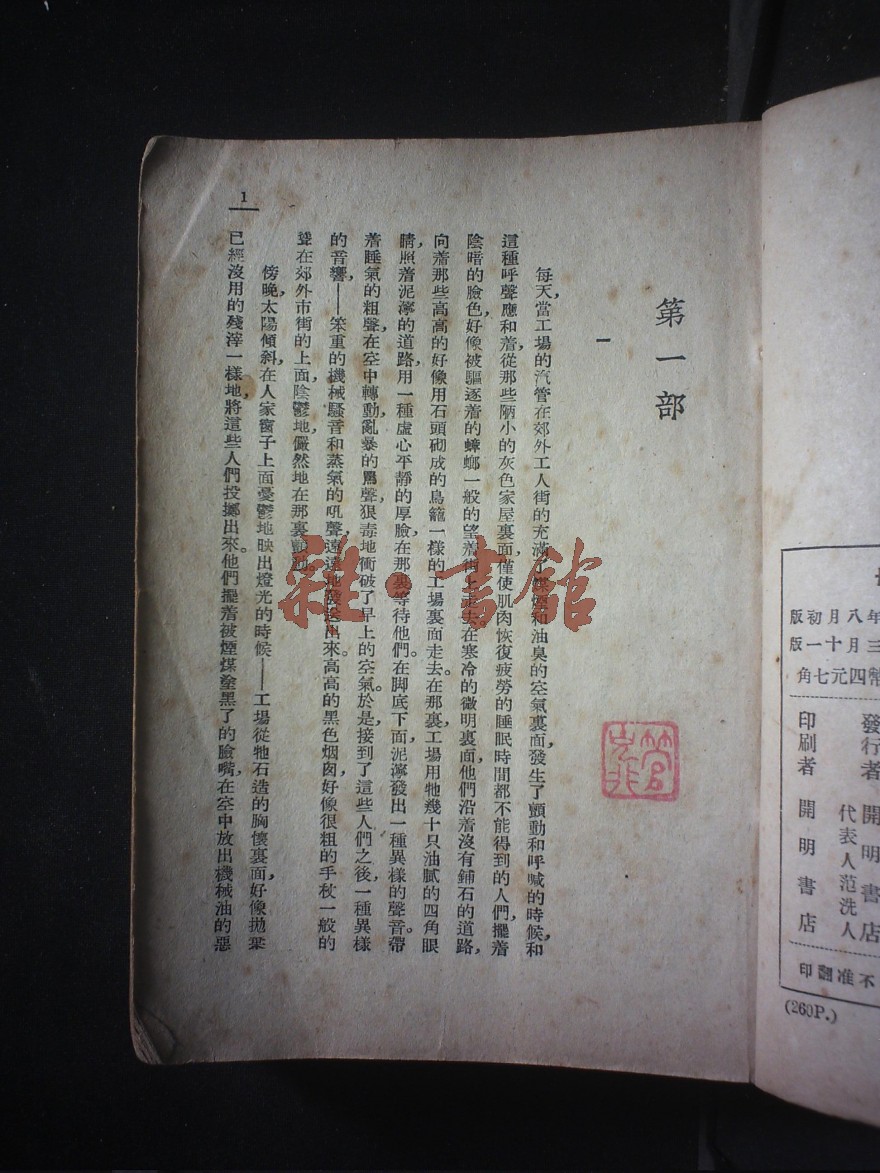 第一部
一
每天當工場的汽管在郊外工人街的充滿了煤煙和油臭的空氣裏面發生了顫動和呼喊的時候和
這種呼聲應和着從那些陋小的灰色家屋裏面僅使肌肉恢復疲勞的睡眠時間都不能得到的人們，擺着
陰暗的臉色，好像被驅逐着的蟑螂一般的望着街上走去。在寒冷的微明裏面他們沿着沒有鋪石的道路，
向着那些高高的好像用石頭砌成的鳥籠一樣的工場裏面走去。在那裏工場用牠幾十只油膩的四角眼
睛，照着泥濘的道路，用一種虛心平靜的厚臉在那裏等待他們。在脚底下面泥濘發出一種異樣的聲音。帶
着睡氣的粗聲在空中轉動，亂暴的罵聲狠毒地衝破了早上的空氣。於是，接到了這些人們之後，一種異樣
的音響，——笨重的機械騷音和蒸氣的吼聲，遠遠地發送出來。高高的黑色烟囱，好像很粗的手杖一般的
聳在郊外市街的上面，陰鬱地儼然地在那裏顫動。
傍晚，太陽傾斜，在人家窗子上面憂鬱地映出燈光的時候——工場從牠石造的胸懷裏面，好像拋棄
已經沒用的殘滓一樣地，將這些人們投擲出來。他們擺着被煙煤塗黑了的臉嘴，在空中放出機械油的惡
1
雜·書館
年八月初版
三月十一版
幣四元七角
發行者 開明書店
代表人范洗人
印刷者 開明書店
不准翻印
(260P.)